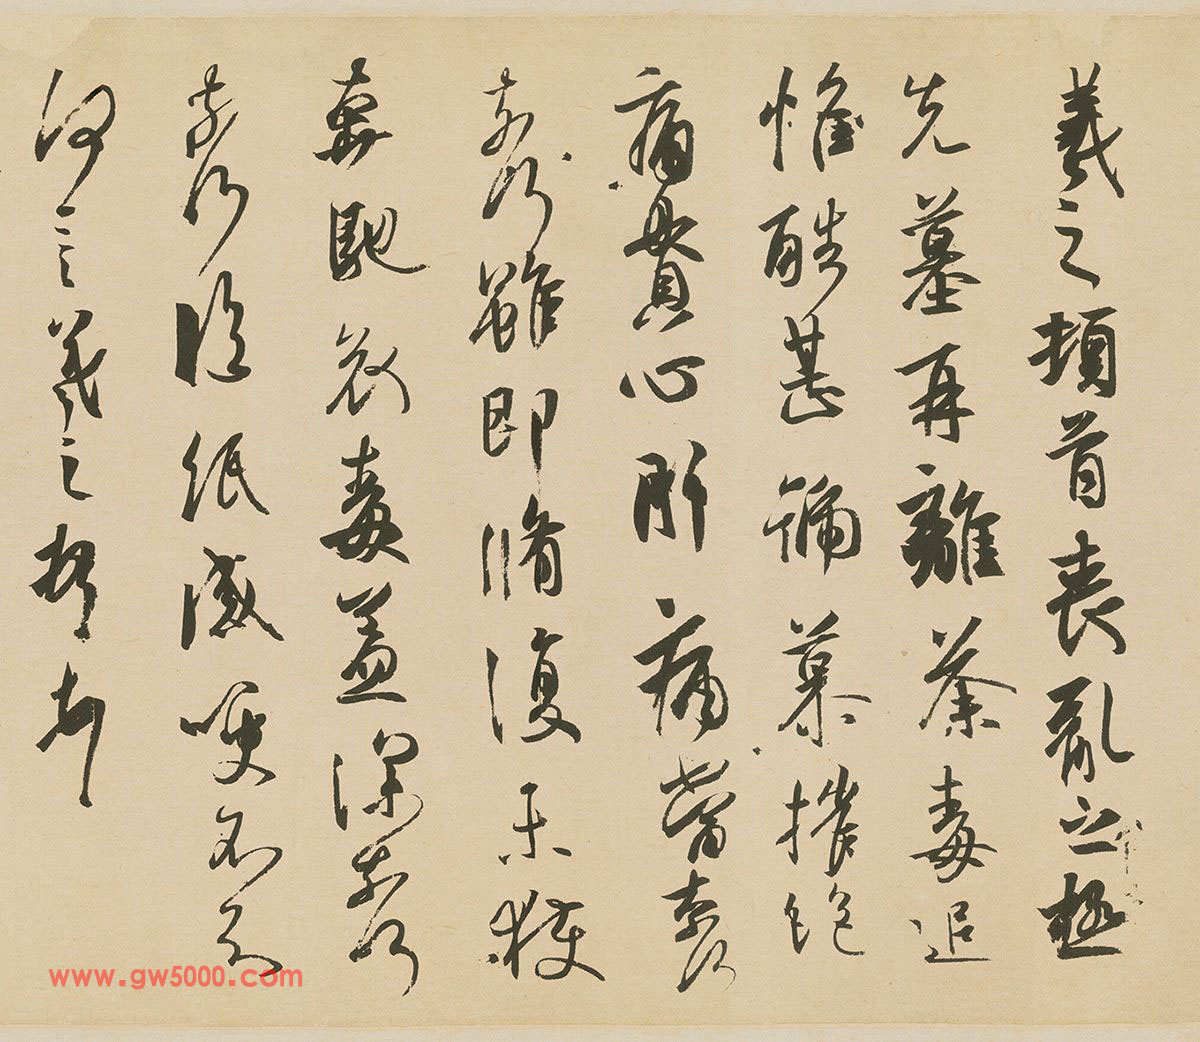 羲之頓首喪亂之極
先墓再離荼毒追
惟酷甚號慕摧絕
痛貫心肝痛當奈何
奈何雖即脩復未獲
奔馳哀毒益深奈何
奈何臨紙感哽不知
何言羲之頓首
www.gw5000.com